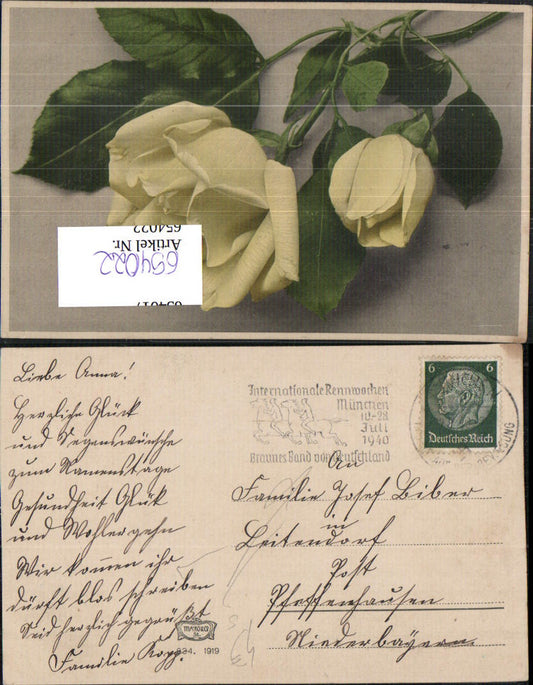 654022
Artikel Nr.
654022
654017
Liebe Anna!
Herzliche Glück
und Segenswünsche
zum Namenstage
Gesundheit Glük
und Wohlergehn
Wir kommen ihr
dürft blos schreiben
Seid herzlich gegrüßt
Familie Kopp.
Internationale Rennwochen
München
18-28
Juli
1940
Braunes Band von Deutschland
6 6
Deutsches Reich
An
Familie Josef Biber
in
Leitendorf
Post
Pfaffenhausen
Niederbayern
334. 1919